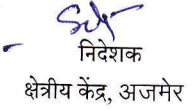 निदेशक
क्षेत्रीय केंद्र, अजमेर